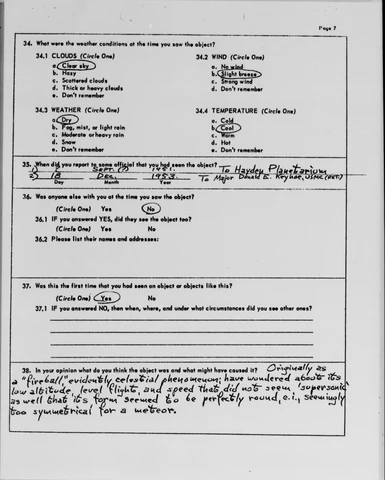 Page 7
34. What were the weather conditions at the time you saw the object?
34.1 CLOUDS (Circle One) 34.2 WIND (Circle One)
a. Clear sky a. No wind
b. Hazy b. Slight breeze
c. Scattered clouds c. Strong wind
d. Thick or heavy clouds d. Don't remember
e. Don't remember
34.3 WEATHER (Circle One) 34.4 TEMPERATURE (Circle One)
a. Dry a. Cold
b. Fog, mist, or light rain b. Cool
c. Moderate or heavy rain c. Warm
d. Snow d. Hot
e. Don't remember e. Don't remember
35. When did you report to some official that you had seen the object?
1) Sept. (?) 1951. To Hayden Planetarium
2) 18 Dec. 1953. To Major Donald E. Keyhoe, USMC (RET.)
Day Month Year
36. Was anyone else with you at the time you saw the object?
(Circle One) Yes No
36.1 IF you answered YES, did they see the object too?
(Circle One) Yes No
36.2 Please list their names and addresses:
37. Was this the first time that you had seen an object or objects like this?
(Circle One) Yes No
37.1 IF you answered NO, then when, where, and under what circumstances did you see other ones?
38. In your opinion what do you think the object was and what might have caused it? Originally as
a "fireball," evidently celestial phenomenon; have wondered about its
low altitude, level flight, and speed that did not seem "supersonic"
as well that its form seemed to be perfectly round, e.i., seemingly
too symmetrical for a meteor.